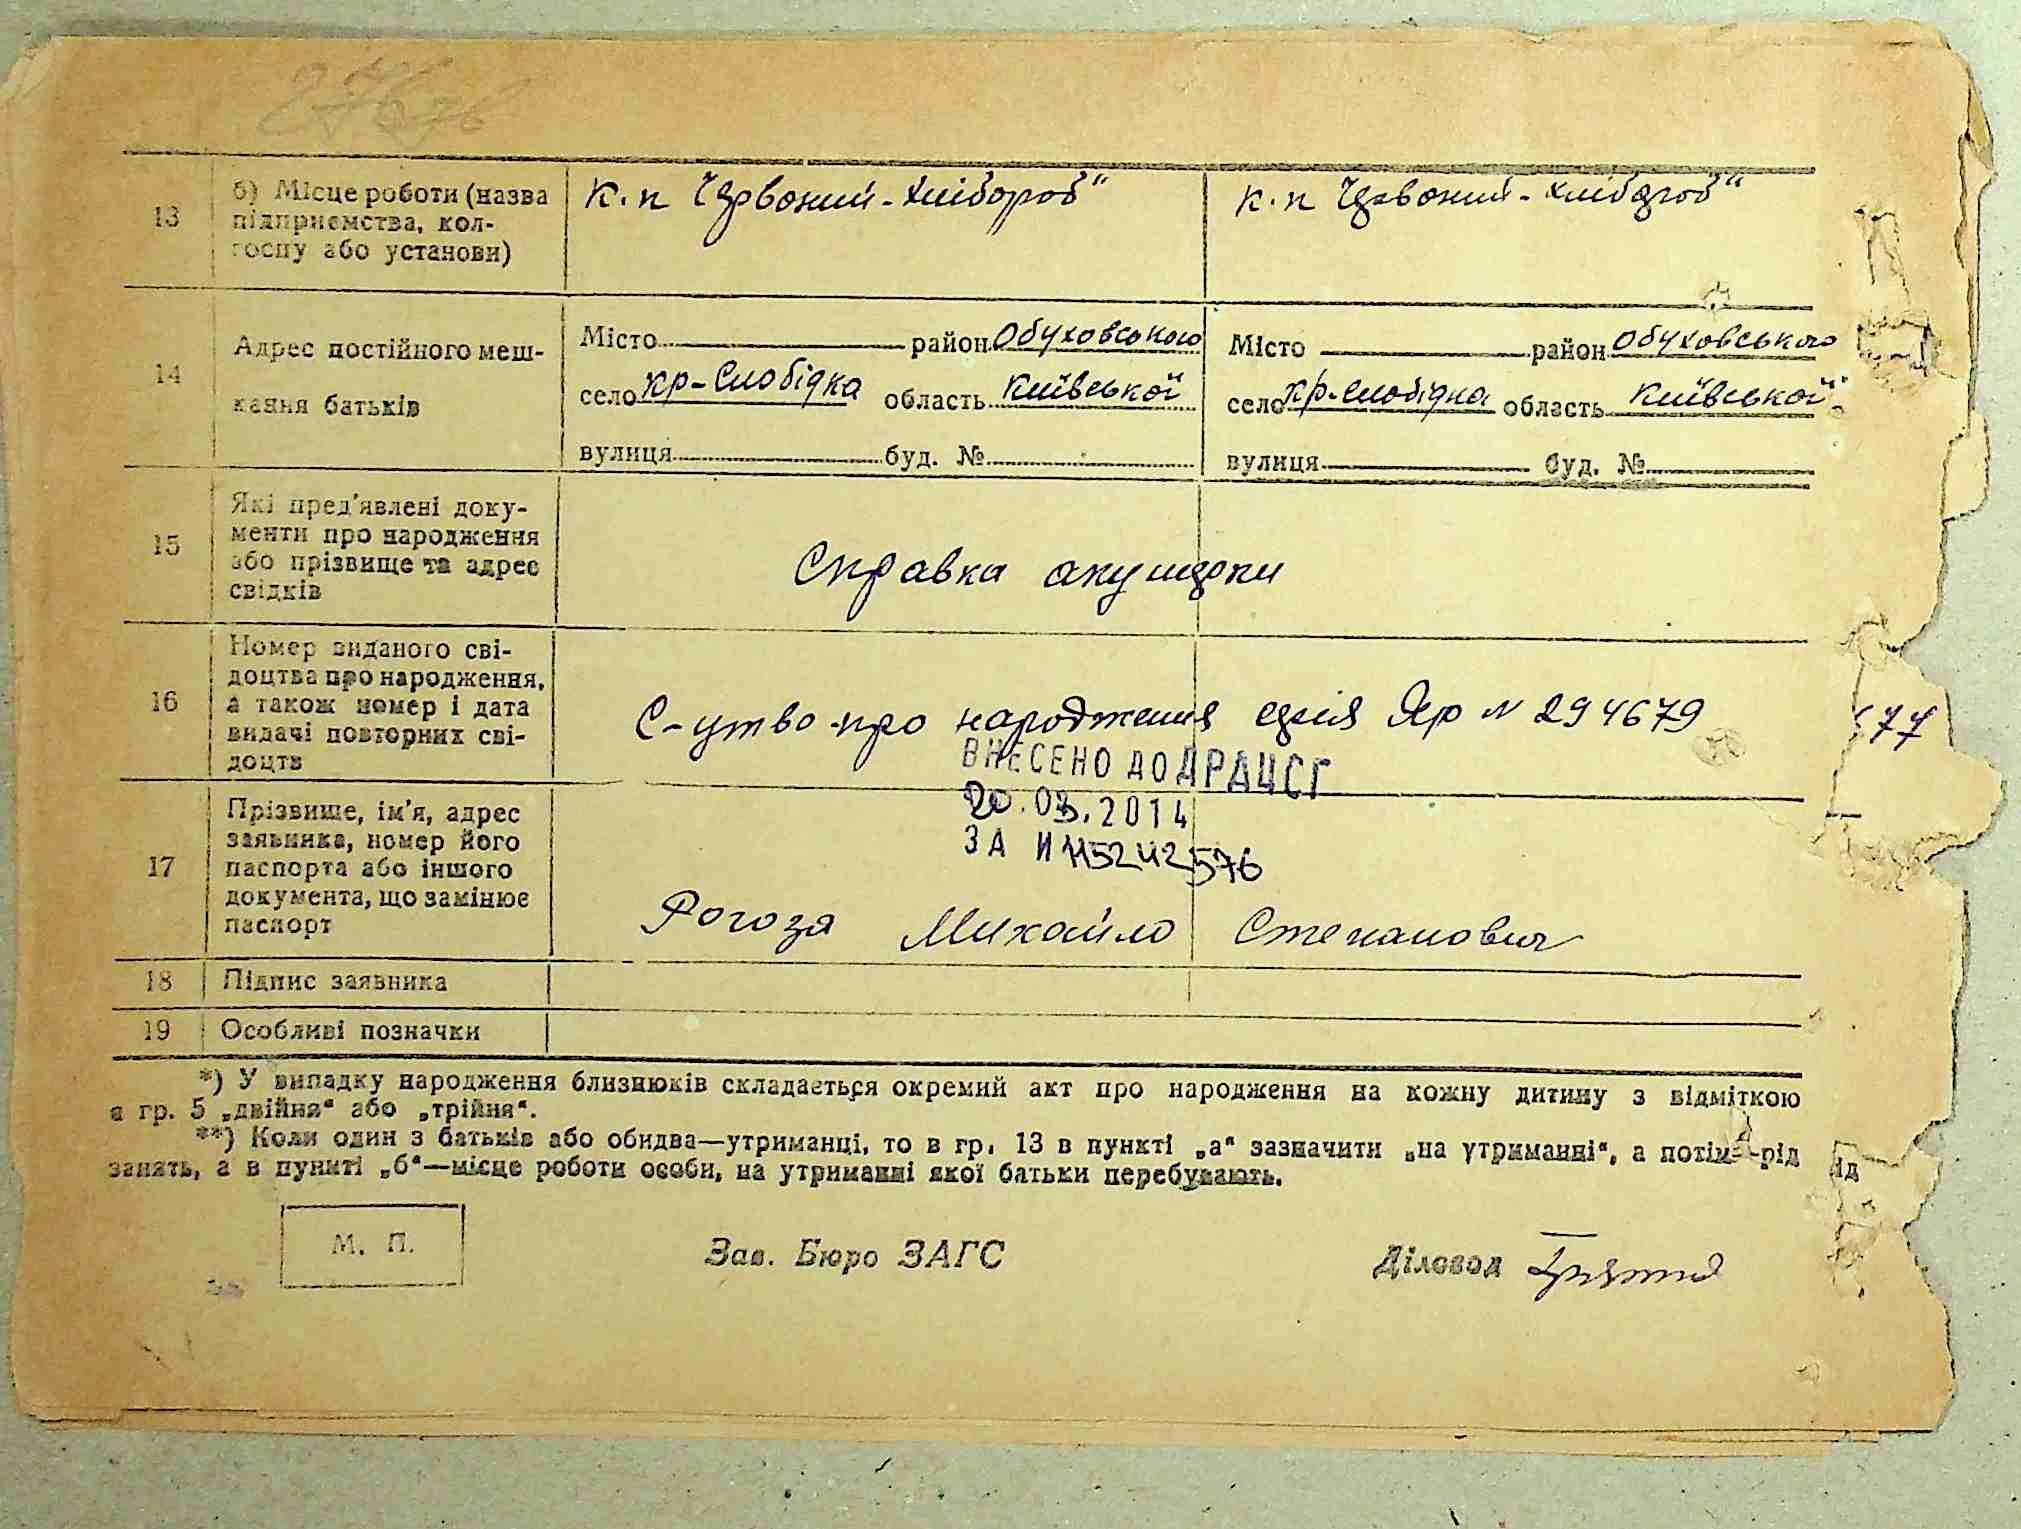 13
б) Місце роботи (назва
підприємства, кол-
госпу або установи)
К.п Червоний-Хлібороб"
К.п Червоний-Хлібороб"
14
Адрес постійного меш-
кання батьків
Місто район Обуховського
село Кр-Слобідка область Київської
вулиця буд. №
Місто район Обуховського
село Кр-Слобідка область Київської
вулиця буд. №
15
Які пред'явлені доку-
менти про народження
або прізвище та адрес
свідків
Справка акушерки
16
Номер виданого сві-
доцтва про народження,
а також номер і дата
видачі повторних сві-
доцтв
С-цтво про народження серія Яр N 294679
77
ВНЕСЕНО ДО ДРАЦСГ
20.03.2014
ЗА И
17
Прізвище, ім'я, адрес
заявника, номер його
паспорта або іншого
документа, що замінює
паспорт
Рогоза Михайло Степанович
18 Підпис заявника
19 Особливі позначки
*) У випадку народження близнюків складається окремий акт про народження на кожну дитину з відміткою
в гр. 5 „двійня“ або „трійня“.
**) Коли один з батьків або обидва—утриманці, то в гр. 13 в пункті „а“ зазначити „на утриманні“, а потім—рід
занять, а в пункті „б“—місце роботи особи, на утриманні якої батьки перебувають.
ід
М. П.
Зав. Бюро ЗАГС
Діловод